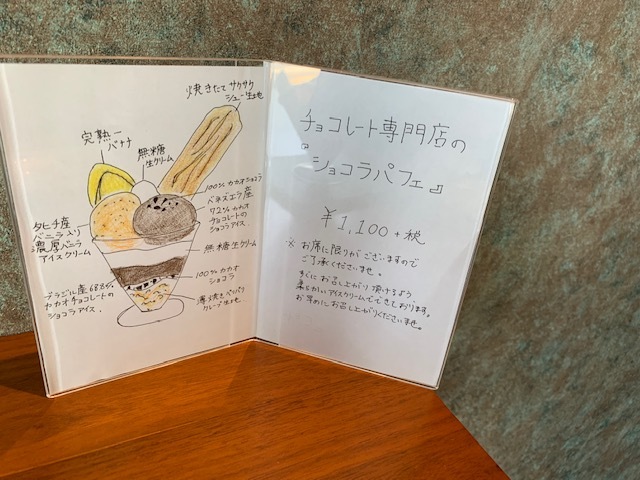 焼きたてサクサク
シュー生地
完熟
バナナ
無糖
生クリーム
100%カカオショコラ
ベネズエラ産
72%カカオ
チョコレートの
ショコラアイス
タヒチ産
バニラ入り
濃厚バニラ
アイスクリーム
無糖生クリーム
100%カカオ
ショコラ
ブラジル産68%
カカオチョコレートの
ショコラアイス
薄焼きパリパリ
クレープ生地
チョコレート専門店の
『ショコラパフェ』
¥1,100+税
※ お席に限りがございますので
ご了承くださいませ。
すぐにお召し上がり頂けるよう、
柔らかいアイスクリームでできております。
お早めにお召し上がりくださいませ。